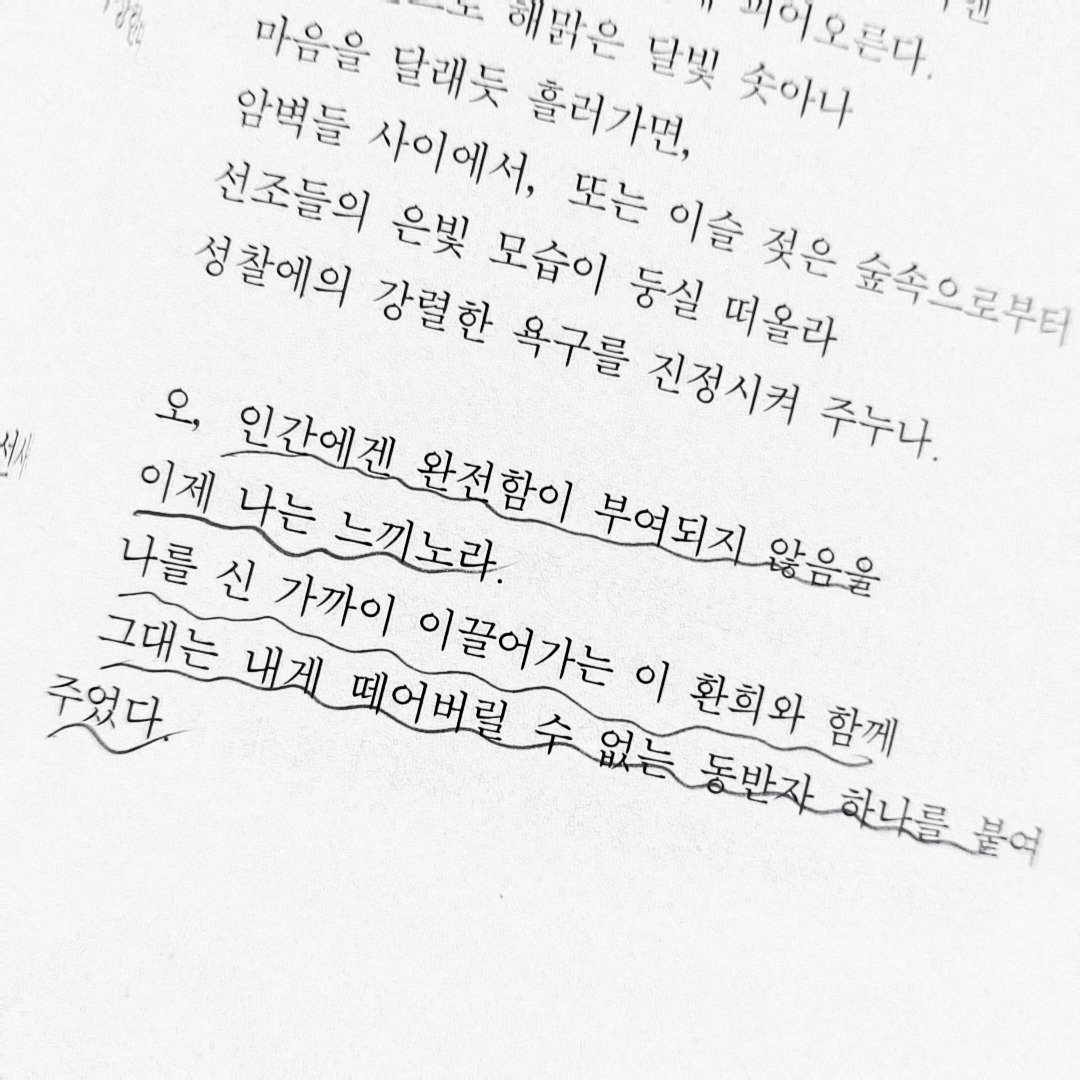 피어오른다.
해맑은 달빛 솟아나
마음을 달래듯 흘러가면,
암벽들 사이에서, 또는 이슬 젖은 숲속으로부터
선조들의 은빛 모습이 둥실 떠올라
성찰에의 강렬한 욕구를 진정시켜 주누나.
오, 인간에겐 완전함이 부여되지 않음을
이제 나는 느끼노라.
나를 신 가까이 이끌어가는 이 환희와 함께
그대는 내게 떼어버릴 수 없는 동반자 하나를 붙여
주었다.